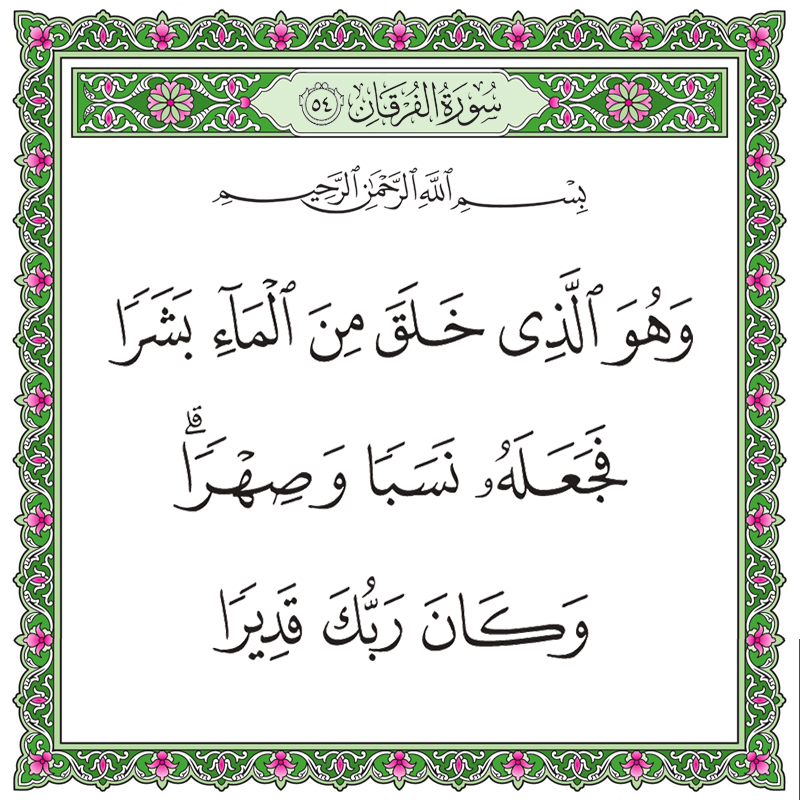 سُورَةُ الفُرْقَانِ ٥٤
بِسْمِ ٱللَّهِ ٱلرَّحْمَٰنِ ٱلرَّحِيمِ
وَهُوَ ٱلَّذِى خَلَقَ مِنَ ٱلْمَآءِ بَشَرًا
فَجَعَلَهُۥ نَسَبًا وَصِهْرًا ۗ
وَكَانَ رَبُّكَ قَدِيرًا